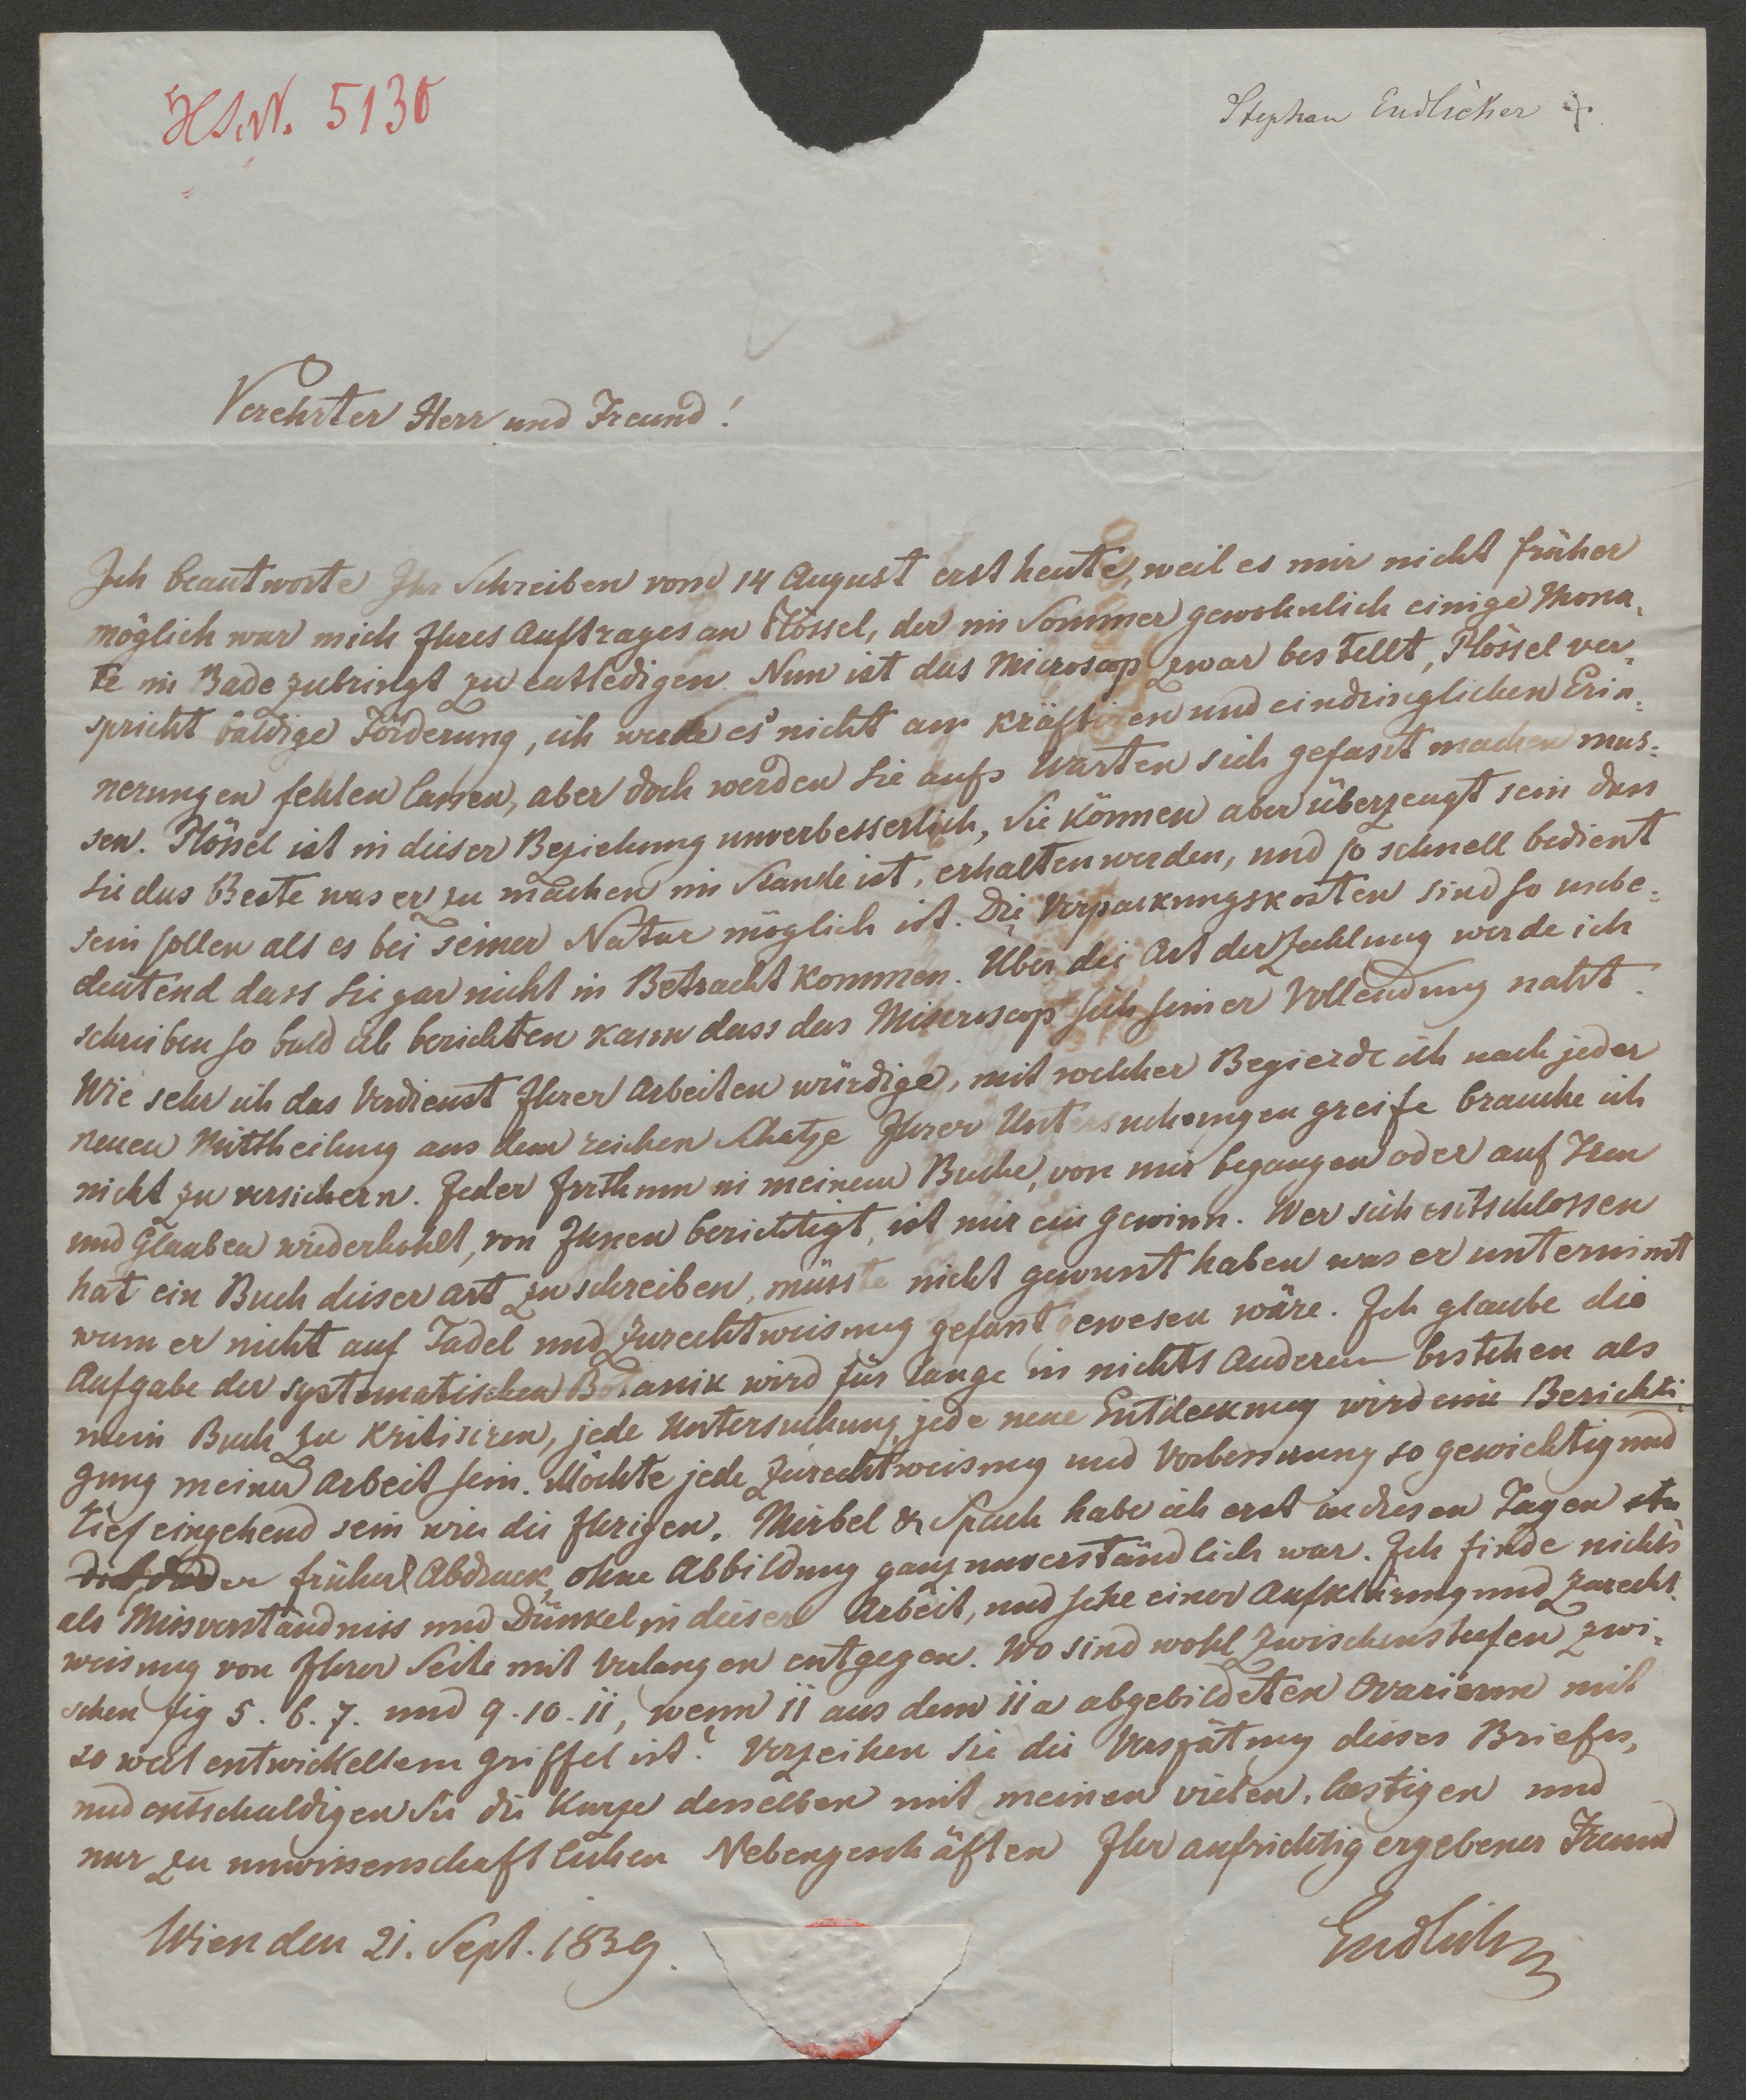 HS.N. 5130
Stephan Endlicher
Verehrter Herr und Freund!
Ich beantworte Ihr Schreiben vom 14 August erst heute, weil es mir nicht früher
möglich war mich Ihres Auftrages an Plössel, der im Sommer gewohnlich einige Mona-
te in Bade zubringt zu entledigen. Nun ist das Microscop zwar bestellt, Plössel ver-
spricht baldige Förderung, ich werde es nicht an kräftigen und eindringlichen Erin-
nerungen fehlen lassen, aber doch werden Sie aufs Warten sich gefasst machen müs-
sen. Plössel ist in dieser Beziehung unverbesserlich, Sie können aber überzeugt sein dass
Sie das Beste was er zu machen im Stande ist, erhalten werden, und so schnell bedient
sein sollen als es bei seiner Natur möglich ist. Die Verpackungskosten sind so unbe-
deutend dass Sie gar nicht in Betracht kommen. Über die Art der Zahlung werde ich
schreiben so bald ich berichten kann dass das Microscop sich seiner Vollendung naht.
Wie sehr ich das Verdienst Ihrer Arbeiten würdige, mit welcher Begierde ich nach jeder
neuen Mittheilung aus dem reichen Schatze Ihrer Untersuchungen greife brauche ich
nicht zu versichern. Jeder Irrthum in meinem Buche, von mir begangen oder auf Treu
und Glauben wiederhohlt, von Ihnen berichtigt, ist mir ein Gewinn. Wer sich entschlossen
hat ein Buch dieser Art zu schreiben, müsste nicht gewusst haben was er unternimt
wenn er nicht auf Tadel und Zurechtweisung gefasst gewesen wäre. Ich glaube die
Aufgabe der systematischen Botanik wird für lange in nichts Anderem bestehen als
mein Buch zu kritisiren, jede Untersuchung, jede neue Entdeckung wird eine Berichti-
gung meiner Arbeit sein. Möchte jede Zurechtweisung und Verbesserung so gewichtig und
tief eingehend sein wie die Ihrigen. Mirbel & Spach habe ich erst in diesen Tagen stu
dirt, da der frühere Abdruck ohne Abbildung ganz unverständlich war. Ich finde nichts
als Missverständniss und Dünkel in dieser Arbeit, und sehe einer Aufklärung und Zurecht-
weisung von Ihrer Seite mit Verlangen entgegen. Wo sind wohl Zwischenstufen zwi-
schen fig 5. 6. 7. und 9. 10. 11, wenn 11 aus dem 11 a abgebildeten Ovarium mit
so weit entwickeltem Griffel ist? Verzeihen Sie die Verspätung dieses Briefes,
und entschuldigen Sie die Kürze desselben mit meinen vielen, laestigen und
nur zu unwissenschaftlichen Nebengeschäften Ihr aufrichtig ergebener Freund
Wien den 21. Sept. 1839.
Endlicher